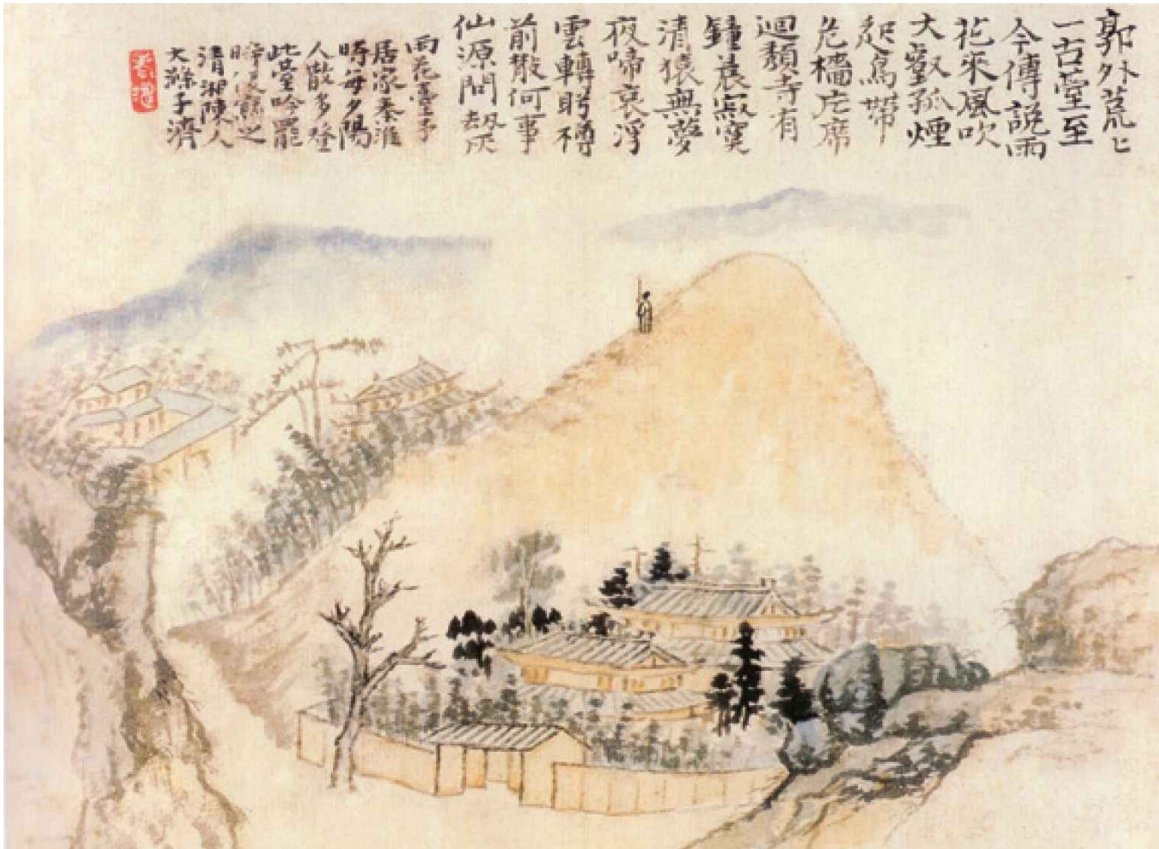 郭外荒〻
一古臺至
今傳說雨
花來風吹
大壑孤煙
起鳥帶
危檣片席
迴頹寺有
鐘晨寂寞
清猿無夢
夜啼哀浮
雲轉盻樽
前散何事
仙源問劫灰
雨花臺予
居家秦淮
時每夕陽
人散多登
此臺吟罷
時復寫之
清湘陳人
大滌子濟